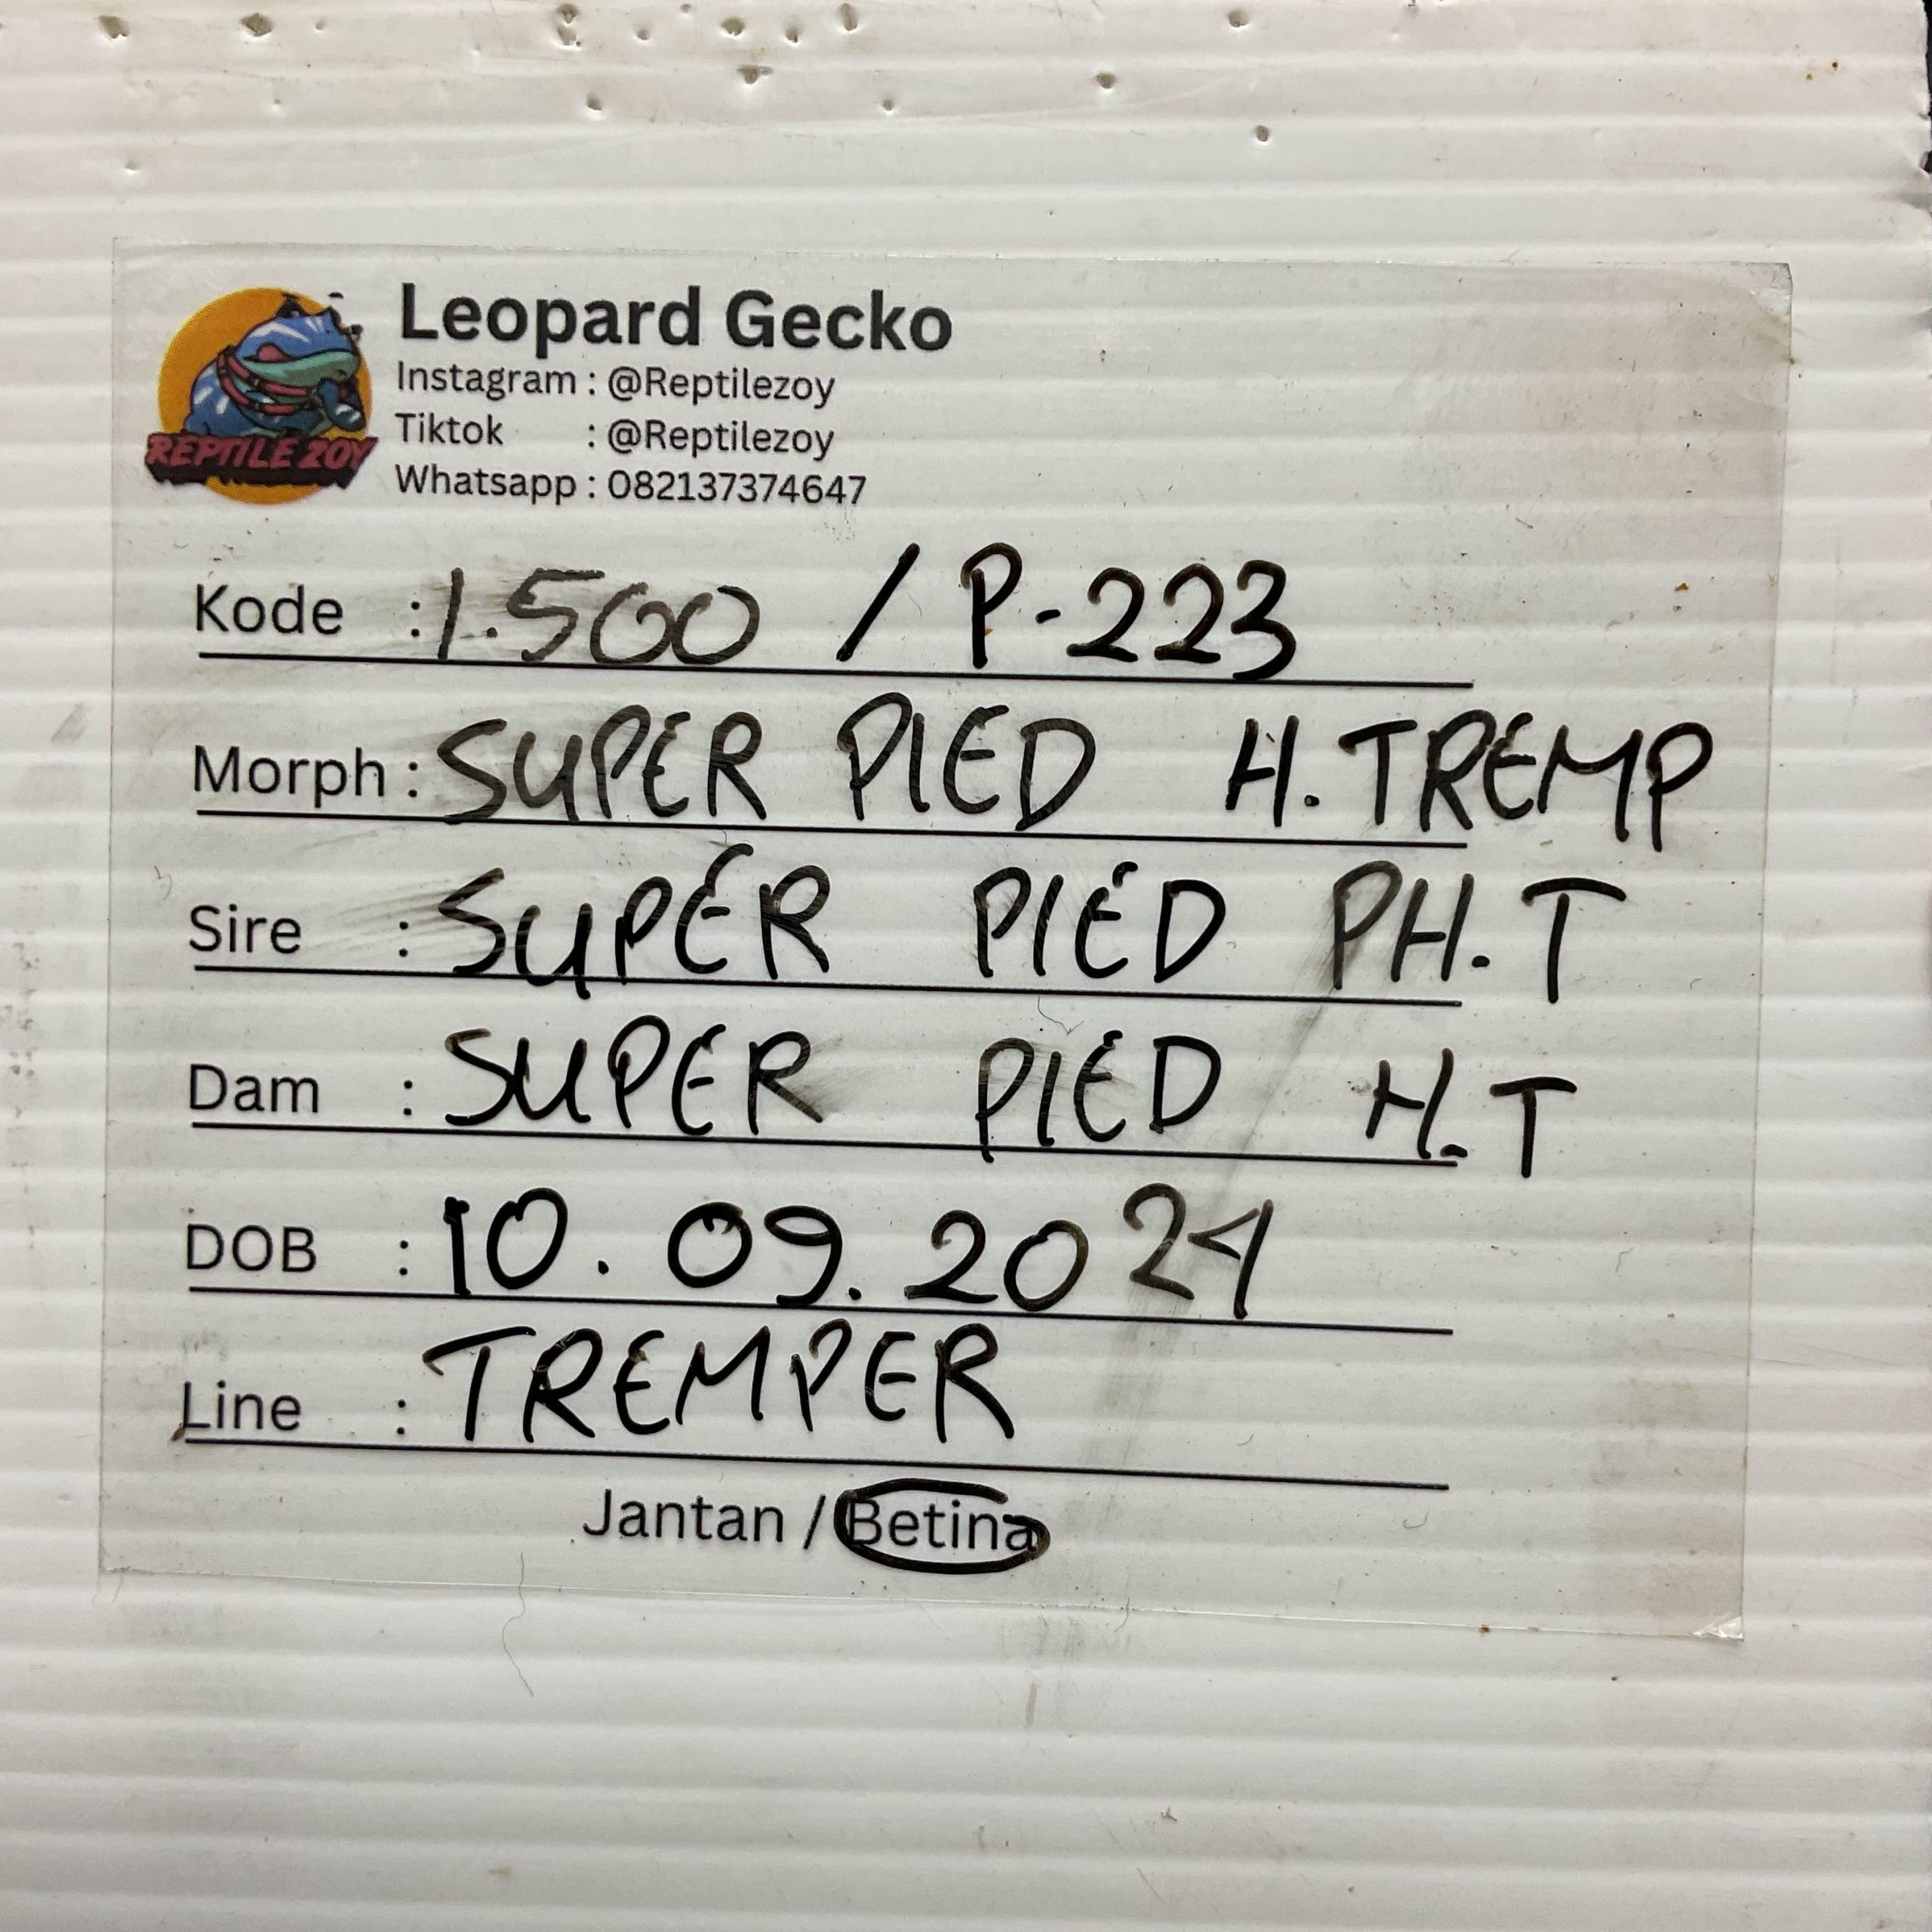 REPTILE ZOY
Leopard Gecko
Instagram : @Reptilezoy
Tiktok : @Reptilezoy
Whatsapp : 082137374647
Kode : 1.500 / P-223
Morph : SUPER PIED H.TREMP
Sire : SUPER PIED PH.T
Dam : SUPER PIED H.T
DOB : 10.09.2024
Line : TREMPER
Jantan / Betina